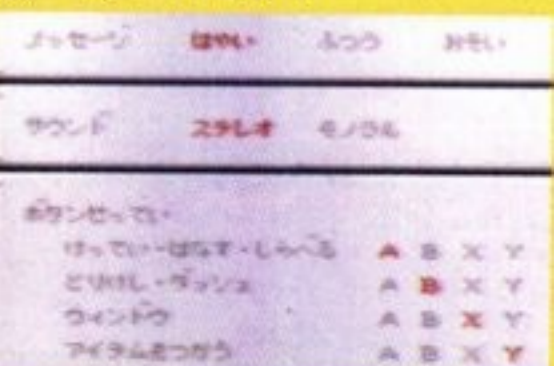 メッセージ はやい ふつう おそい
サウンド ステレオ モノラル
ボタンせってい
けってい・はなす・しらべる A B X Y
とりけし・ダッシュ A B X Y
ウィンドウ A B X Y
アイテムをつかう A B X Y